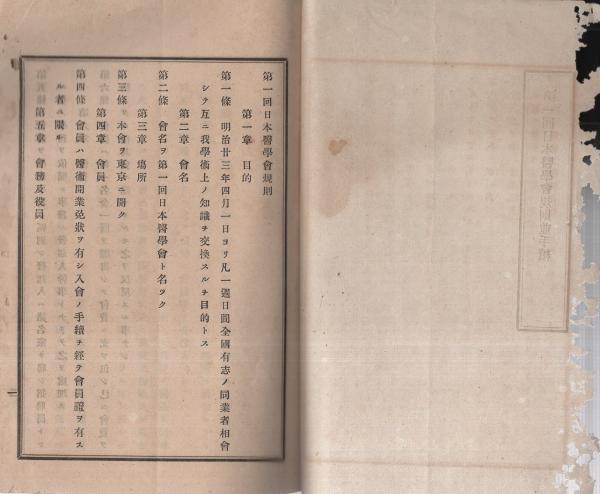 第一回日本醫學會規則
第一章　目的
第一條　明治廿三年四月一日ヨリ凡一週日間全國有志ノ同業者相會
シテ互ニ我學術上ノ知識ヲ交換スルヲ目的トス
第二章　會名
第二條　會名ヲ第一回日本醫學會ト名ツク
第三章　塲所
第三條　本會ヲ東京ニ開ク
第四章　會員
第四條　會員ハ醫術開業免狀ヲ有シ入會ノ手續ヲ經テ會員證ヲ有ス
ル者ニ限ル
第五章　會務及役員
一